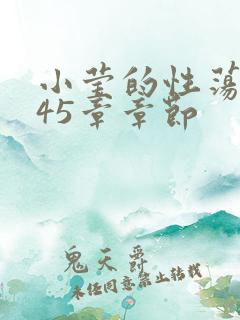 小莹的性荡
45章章节
鬼天爵
未经同意禁止转载